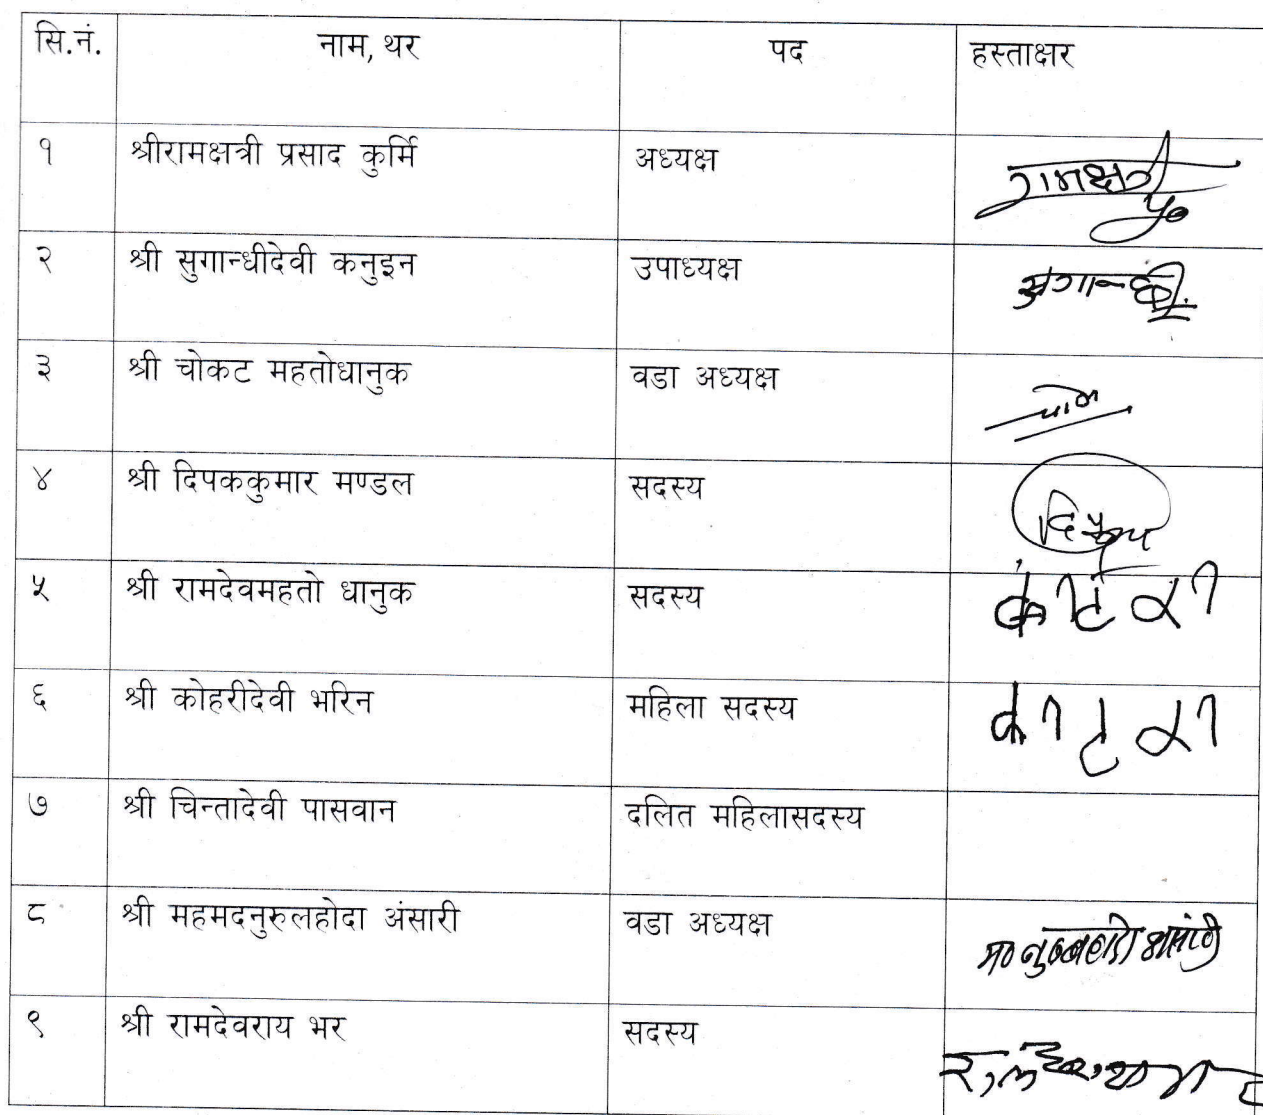 सि.नं. नाम, थर पद हस्ताक्षर
१ श्रीरामक्षत्री प्रसाद कुर्मि अध्यक्ष रामक्षत्री प्र०
२ श्री सुगान्धीदेवी कनुइन उपाध्यक्ष सुगान्धी
३ श्री चोकट महतोधानुक वडा अध्यक्ष
४ श्री दिपककुमार मण्डल सदस्य
५ श्री रामदेवमहतो धानुक सदस्य
६ श्री कोहरीदेवी भरिन महिला सदस्य
७ श्री चिन्तादेवी पासवान दलित महिलासदस्य
८ श्री महमदनुरुलहोदा अंसारी वडा अध्यक्ष
९ श्री रामदेवराय भर सदस्य